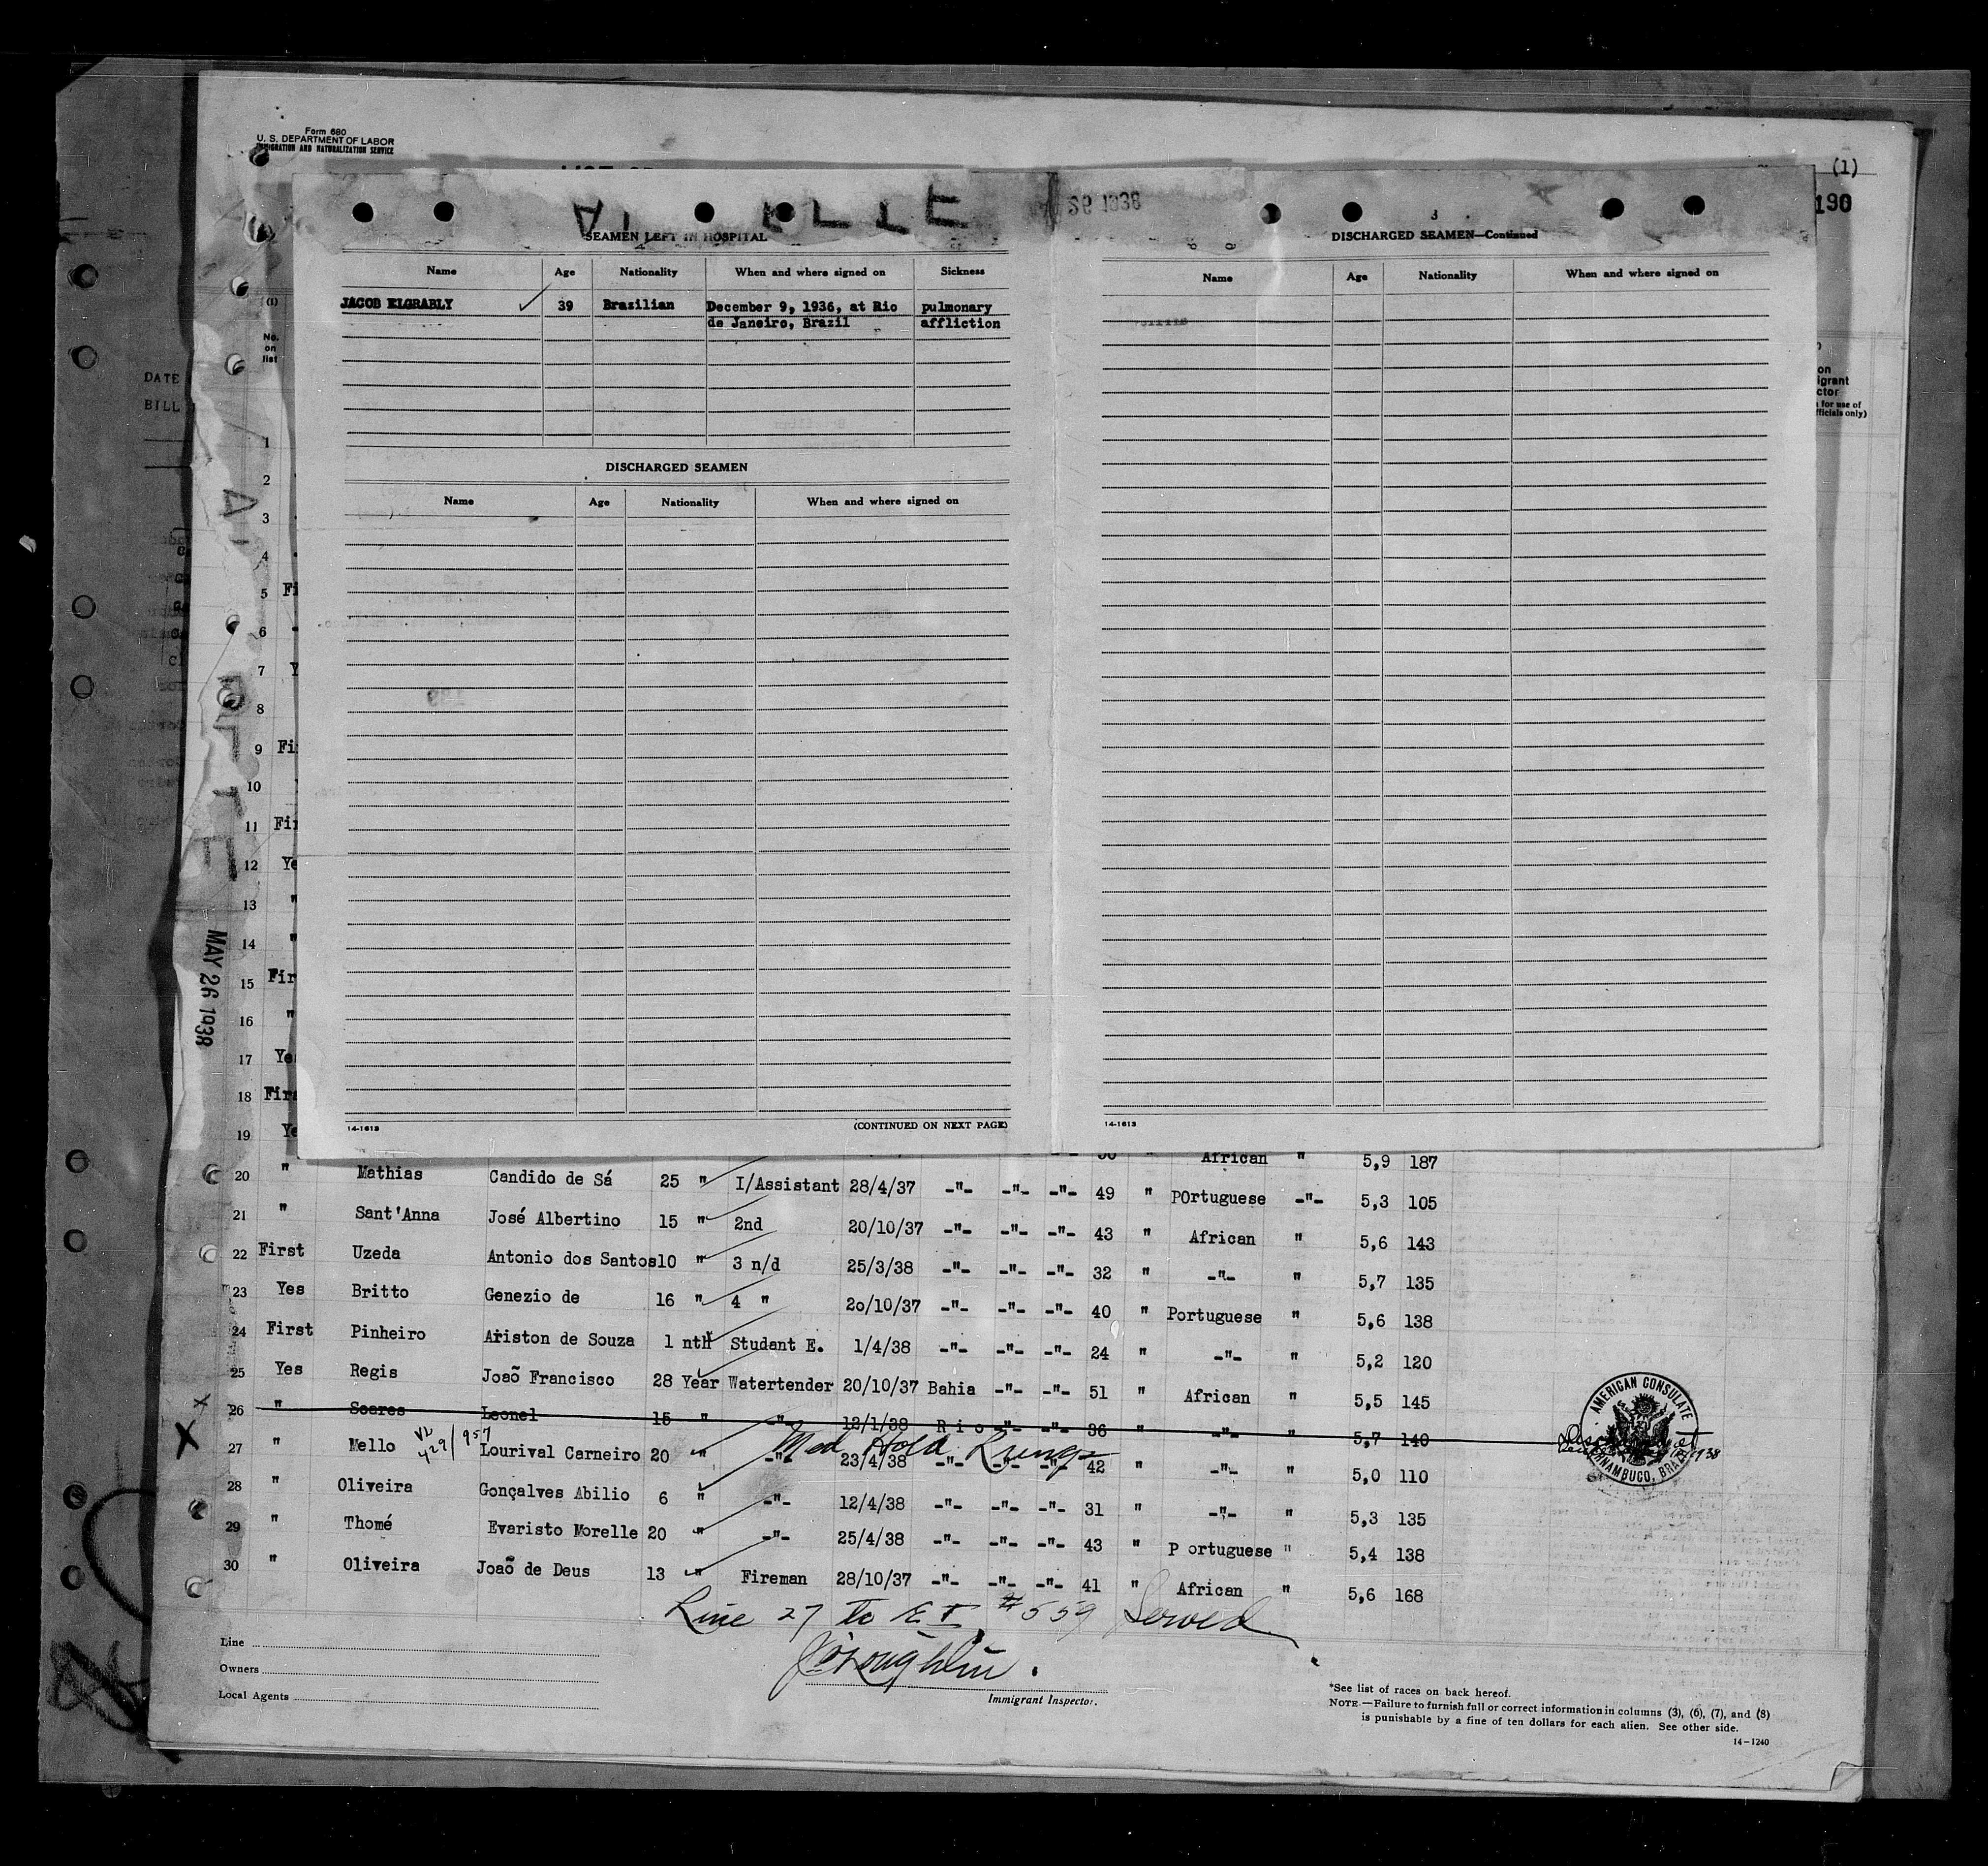 Form 680
U. S. DEPARTMENT OF LABOR
IMMIGRATION AND NATURALIZATION SERVICE
(1)
190
26 1938
3
SEAMEN LEFT IN HOSPITAL
Name Age Nationality When and where signed on Sickness
JACOB ELGRABLY 39 Brazilian December 9, 1936, at Rio pulmonary
de Janeiro, Brazil affliction
DISCHARGED SEAMEN
Name Age Nationality When and where signed on
14-1613
(CONTINUED ON NEXT PAGE)
DISCHARGED SEAMEN—Continued
Name Age Nationality When and where signed on
14-1613
DATE
BILL
(1)
No.
on
list
on
igrant
ctor
for use of
fficials only)
1
2
3
4
5 Fi
6
7 Y
8
9 Fi
10
11 Fir
12 Ye
13 "
14 "
15 Fir
16 "
17 Yes
18 Firs
19 Ye
MAY 26 1938
African " 5,9 187
20 " Mathias Candido de Sá 25 " I/Assistant 28/4/37 -"- -"- -"- 49 " POrtuguese -"- 5,3 105
21 " Sant'Anna José Albertino 15 " 2nd 20/10/37 -"- -"- -"- 43 " African " 5,6 143
22 First Uzeda Antonio dos Santos 10 " 3 n/d 25/3/38 -"- -"- -"- 32 " -"- " 5,7 135
23 Yes Britto Genezio de 16 " 4 " 2o/10/37 -"- -"- -"- 40 " Portuguese " 5,6 138
24 First Pinheiro Ariston de Souza 1 nth Studant E. 1/4/38 -"- -"- -"- 24 " -"- " 5,2 120
25 Yes Regis Joaõ Francisco 28 Year Watertender 20/10/37 Bahia -"- -"- 51 " African " 5,5 145
X 26 " Soares Leonel 15 " -"- 12/1/38 R i o -"- -"- 36 " -"- " 5,7 140
X 27 " Mello 429/957 Lourival Carneiro 20 " -"- 23/4/38 -"- -"- -"- 42 " -"- " 5,0 110
Med Hold Lungs
28 " Oliveira Gonçalves Abilio 6 " -"- 12/4/38 -"- -"- -"- 31 " -"- " 5,3 135
29 " Thomé Evaristo Morelle 20 " -"- 25/4/38 -"- -"- -"- 43 " P ortuguese " 5,4 138
30 " Oliveira Joaõ de Deus 13 " Fireman 28/10/37 -"- -"- -"- 41 " African " 5,6 168
AMERICAN CONSULATE
PERNAMBUCO, BRAZIL
Line 27 to E I #559 Served
J O'Loughlin.
Immigrant Inspector.
Line
Owners
Local Agents
*See list of races on back hereof.
NOTE.—Failure to furnish full or correct information in columns (3), (6), (7), and (8)
is punishable by a fine of ten dollars for each alien. See other side.
14-1240